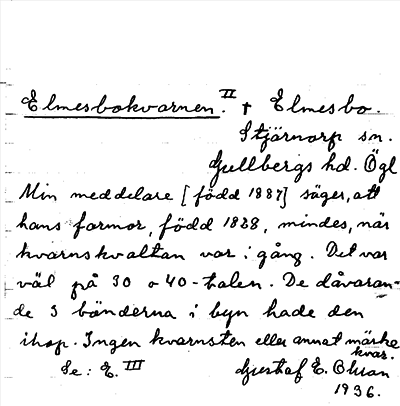 Elmesbokvarnen. II † Elmesbo.
Stjärnorp sn.
Gullbergs hd. Ögl
Min meddelare [född 1887] säger, att
hans farmor, född 1828, mindes, när
kvarnskvaltan var i gång. Det var
väl på 30 o 40-talen. De dåvaran-
de 3 bönderna i byn hade den
ihop. Ingen kvarnsten eller annat märke
kvar.
Se: E. III Gustaf E. Ohlson
1936.